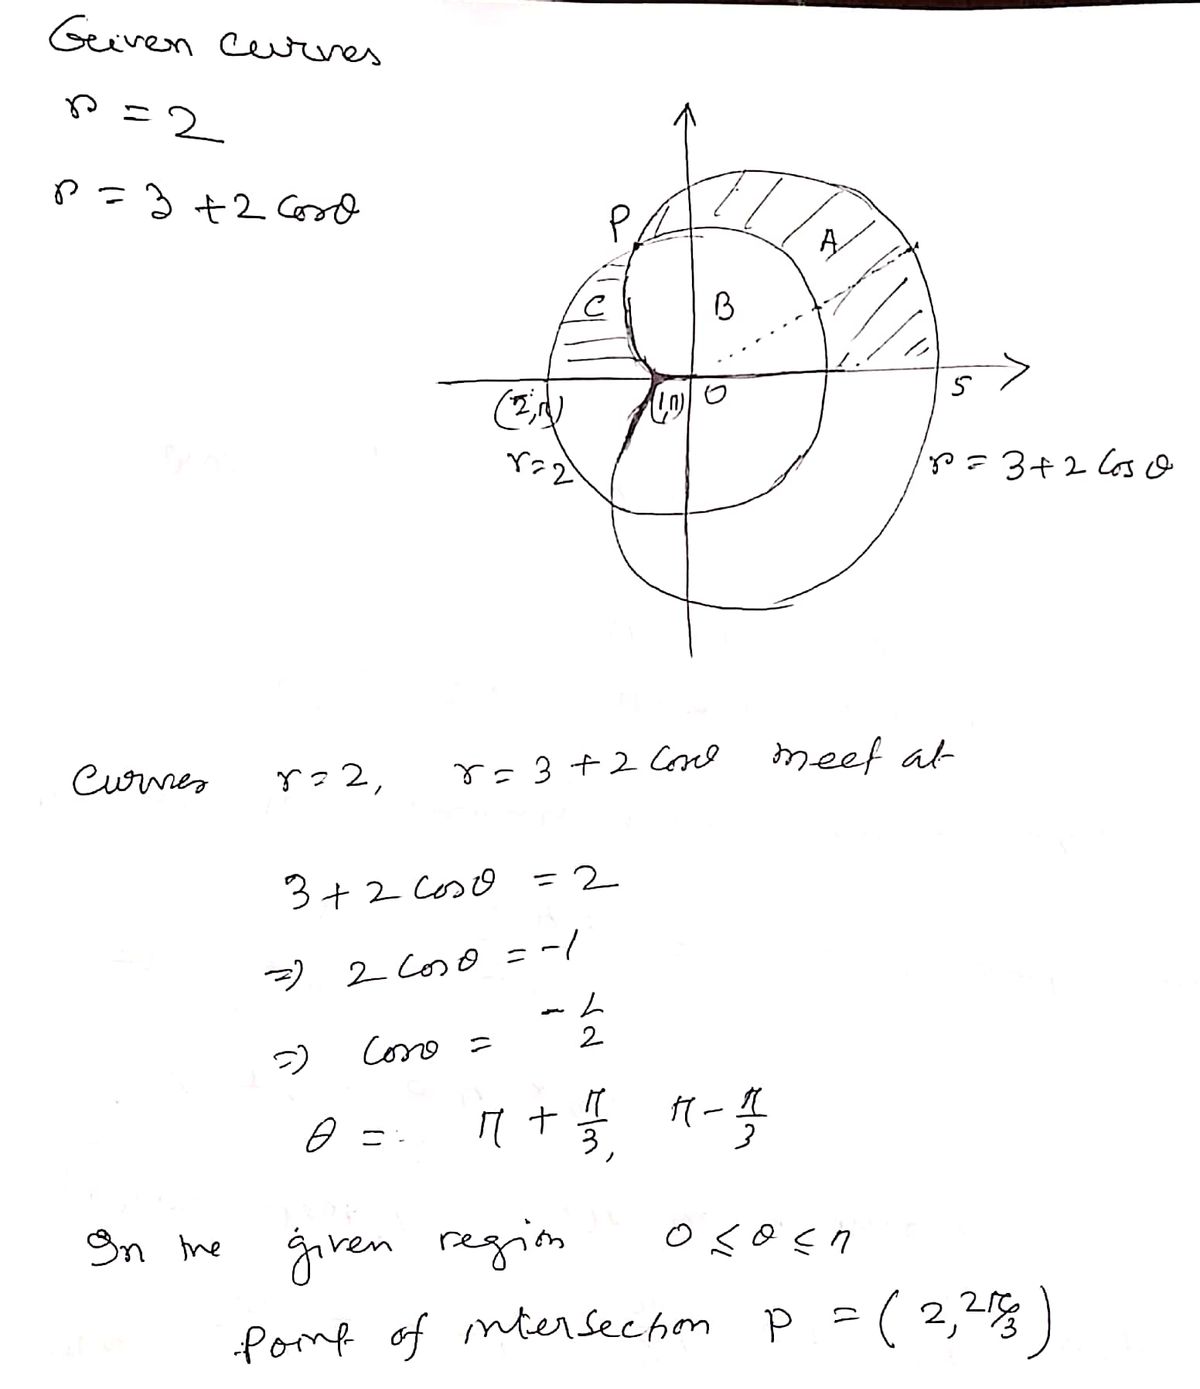 Given curves
r = 2
r = 3 + 2 Cosθ
P
A
C
B
(2,π)
(1,π)
O
5
r=2
r = 3+2 Cosθ
Curves r=2, r = 3 + 2 Cosθ meet at
3 + 2 Cosθ = 2
=) 2 Cosθ = -1
=) Cosθ = -1/2
θ = π + π/3, π - π/3
In the given region 0 ≤ θ ≤ π
Point of intersection P = (2, 2π/3)